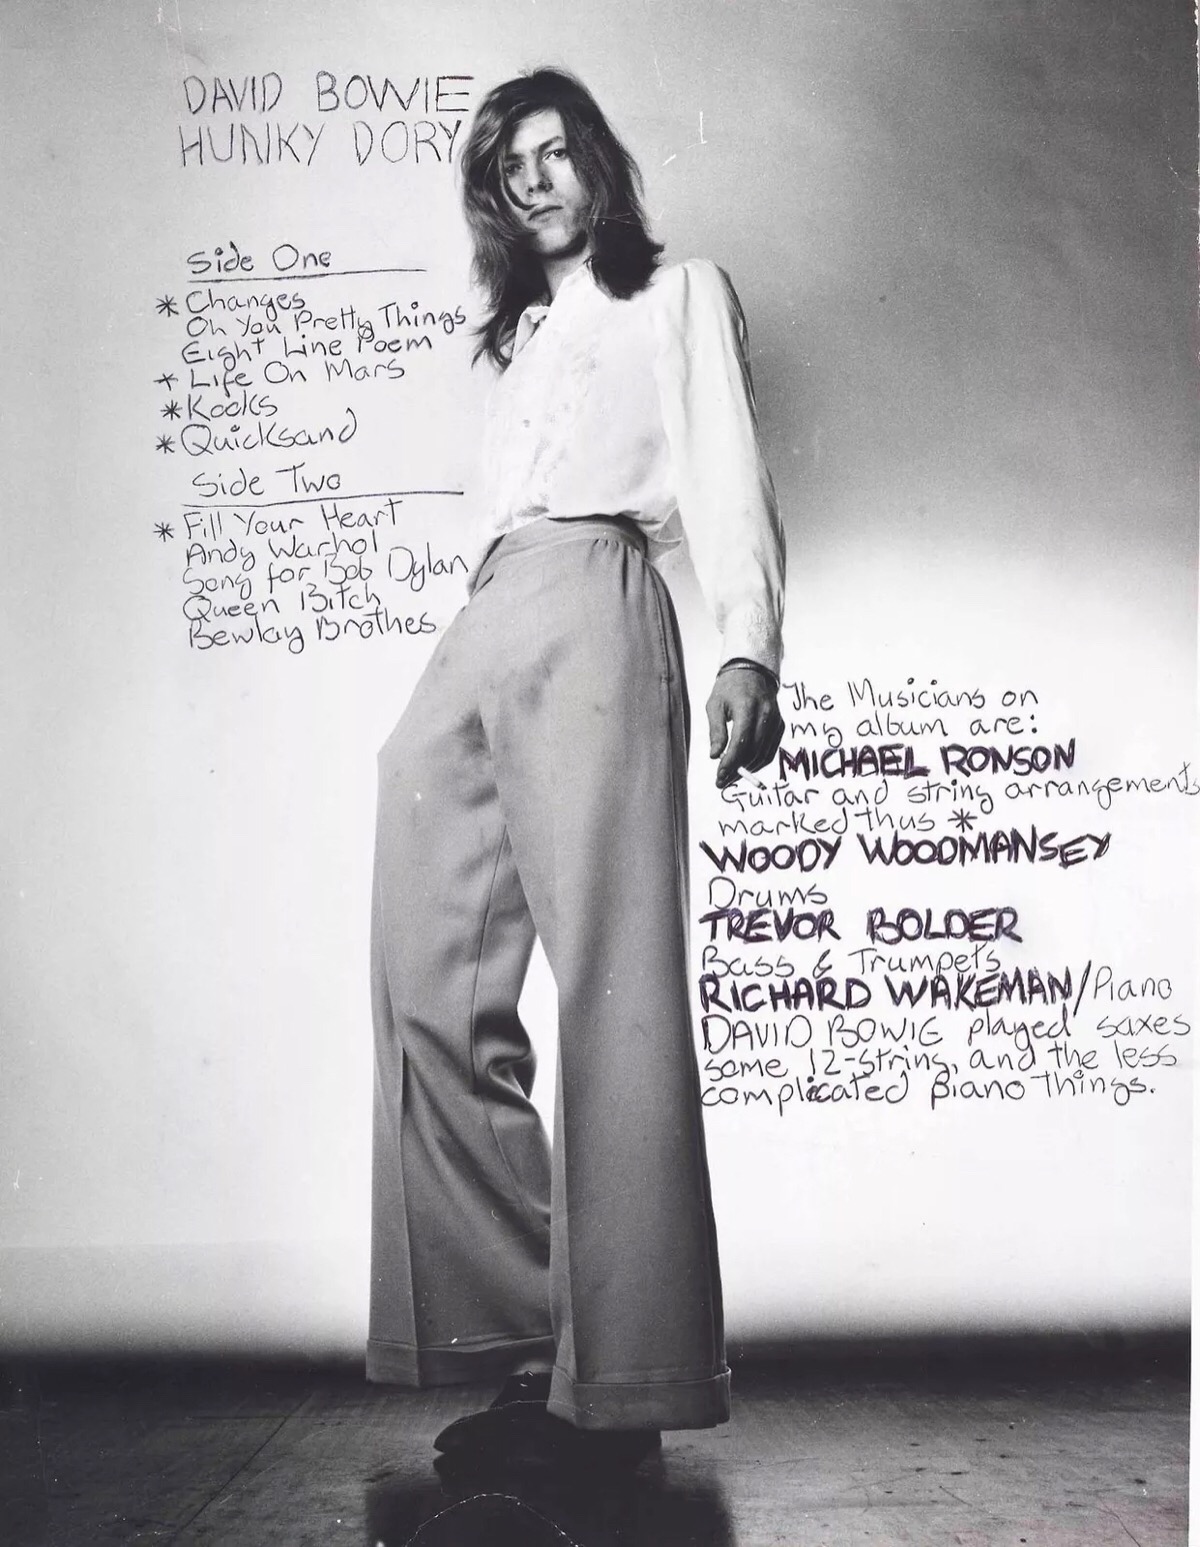 DAVID BOWIE
HUNKY DORY
Side One
* Changes
Oh You Pretty Things
Eight Line Poem
* Life On Mars
* Kooks
* Quicksand
Side Two
* Fill Your Heart
Andy Warhol
Song for Bob Dylan
Queen Bitch
Bewlay Brothes
The Musicians on
my album are:
MICHAEL RONSON
Guitar and string arrangements
marked thus *
WOODY WOODMANSEY
Drums
TREVOR BOLDER
Bass & Trumpets
RICHARD WAKEMAN/Piano
DAVID BOWIE played saxes
some 12-string, and the less
complicated piano things.